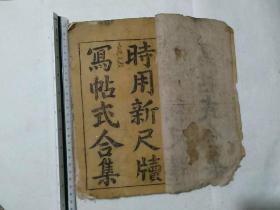 時用新尺牘
寫帖式合集